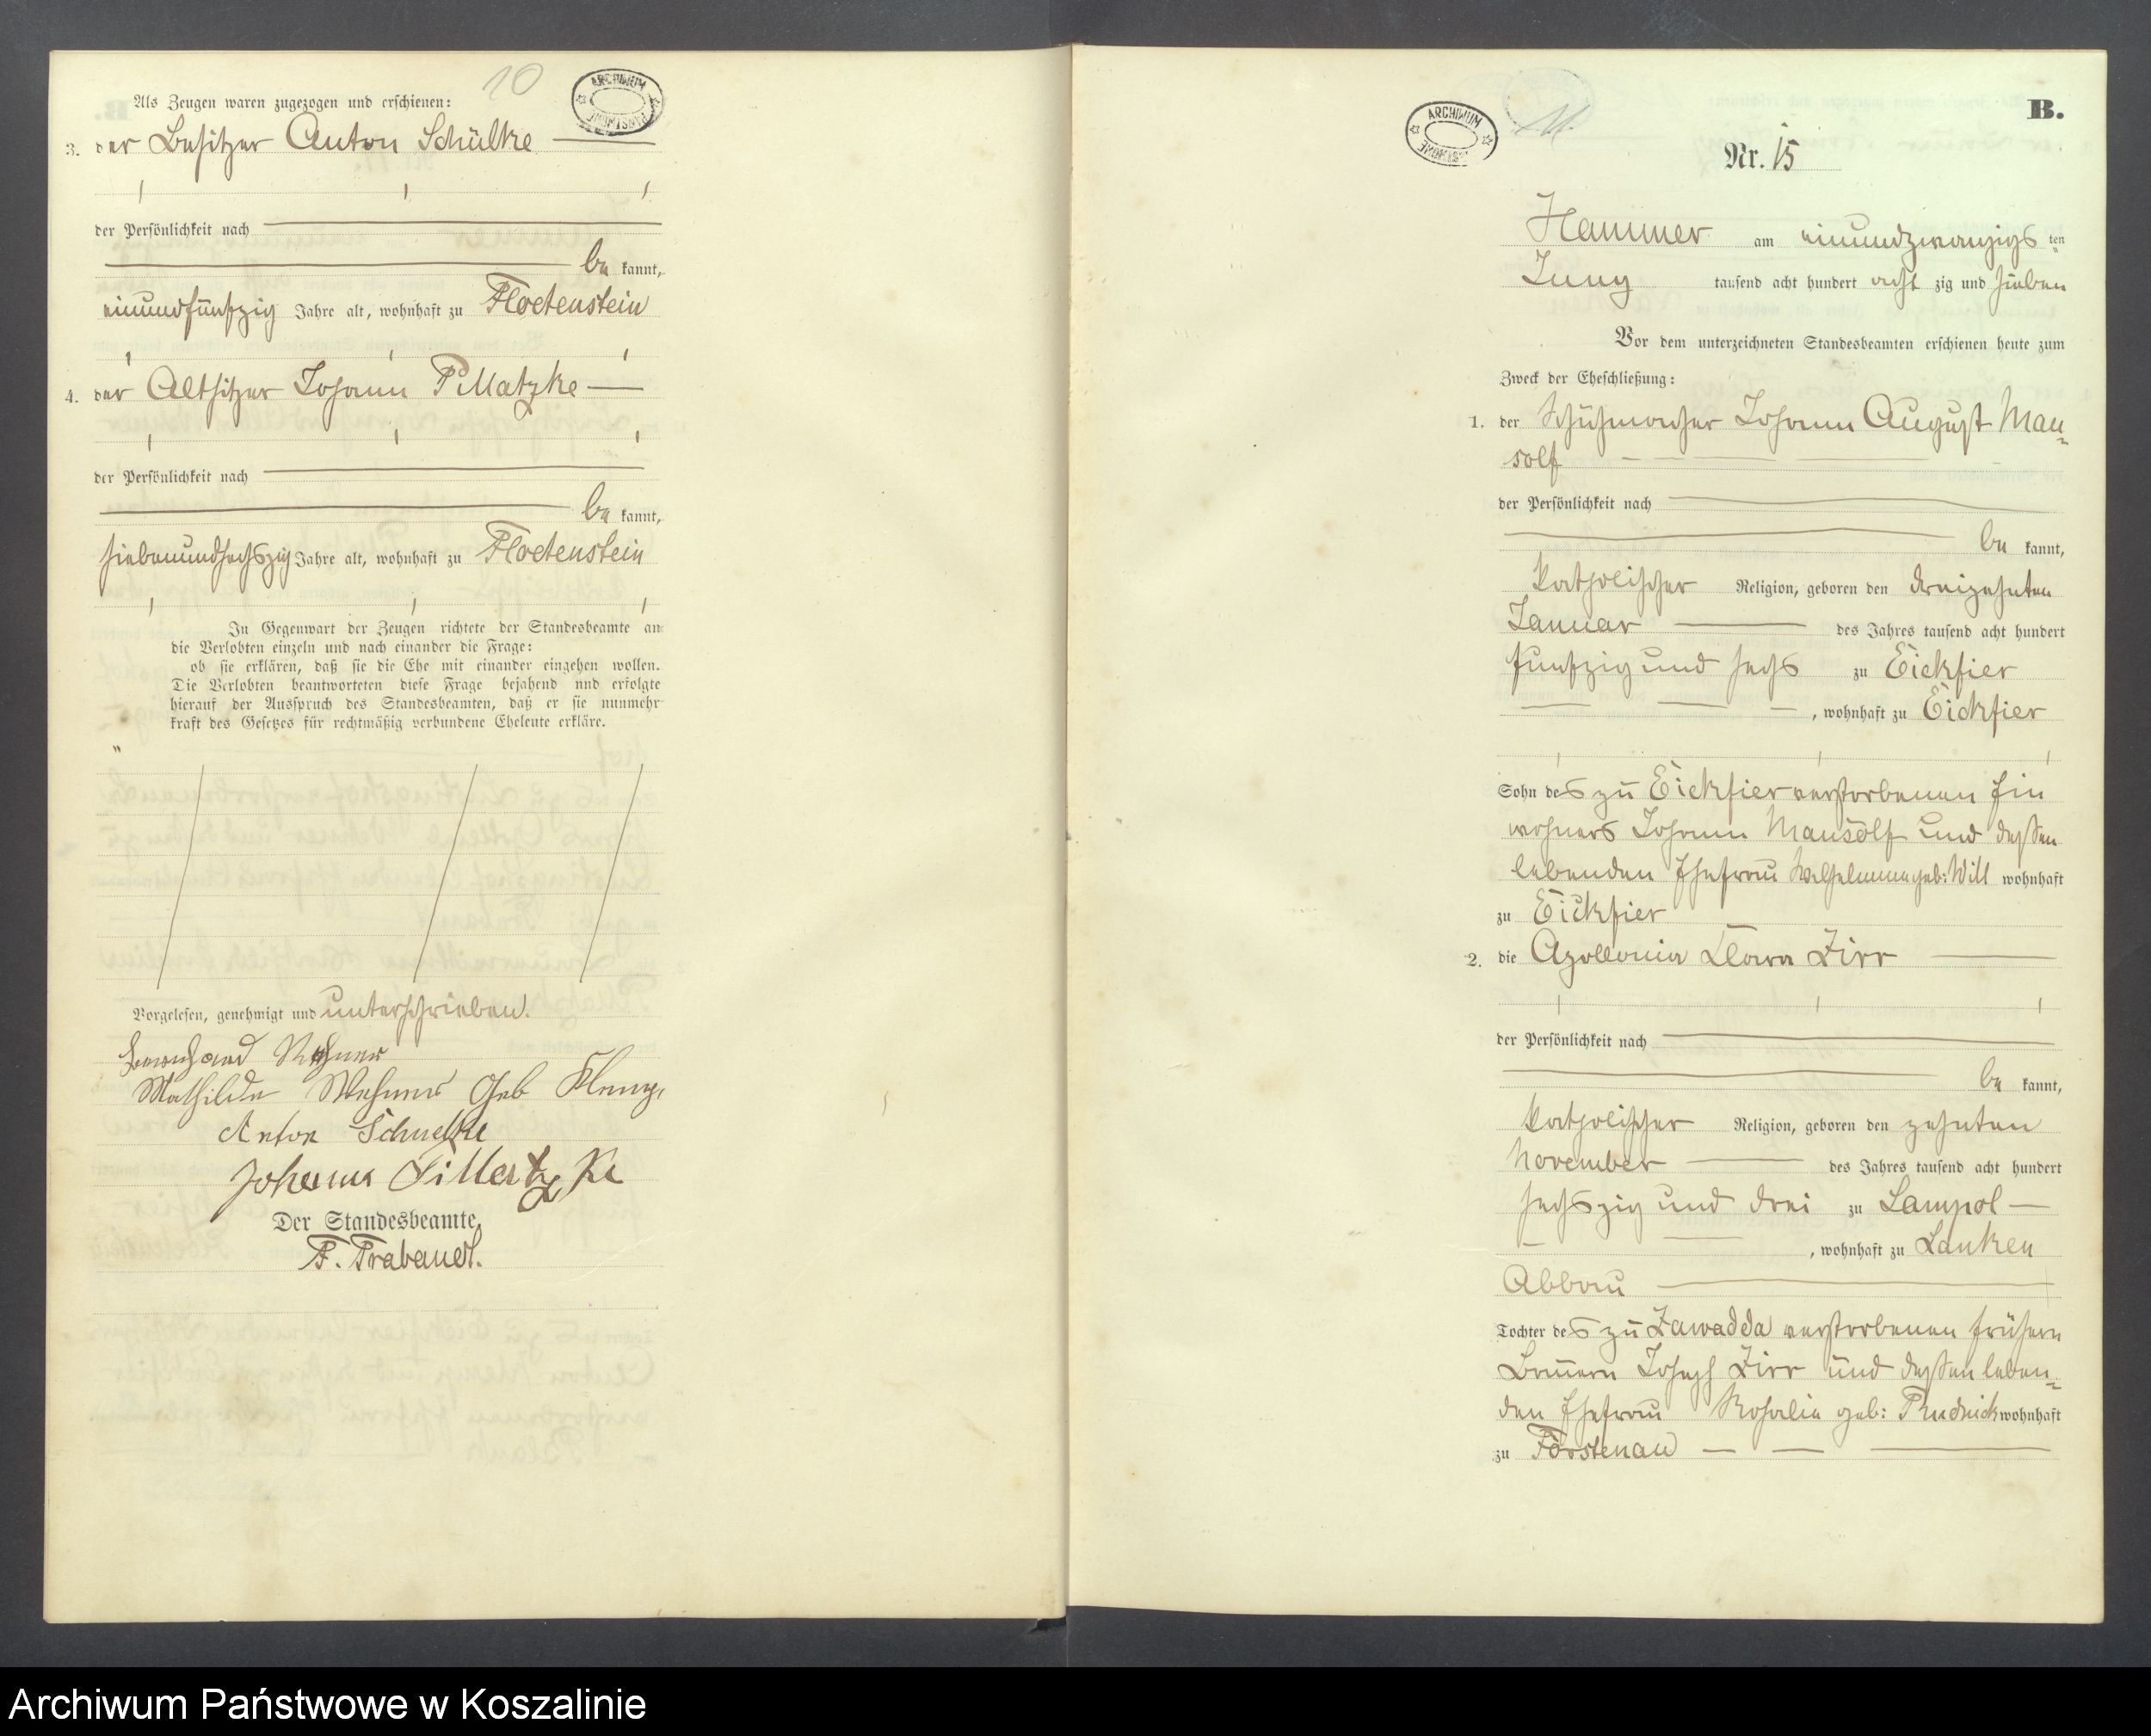 10
ARCHIWUM PAŃSTWOWE
Als Zeugen waren zugezogen und erschienen:
3. der Besitzer Anton Schülke
der Persönlichkeit nach
be kannt,
einundfünfzig Jahre alt, wohnhaft zu Floetenstein
4. der Altsitzer Johann Pillatzke
der Persönlichkeit nach
be kannt,
siebenundsechszig Jahre alt, wohnhaft zu Floetenstein
In Gegenwart der Zeugen richtete der Standesbeamte an
die Verlobten einzeln und nach einander die Frage:
ob sie erklären, daß sie die Ehe mit einander eingehen wollen.
Die Verlobten beantworteten diese Frage bejahend und erfolgte
hierauf der Ausspruch des Standesbeamten, daß er sie nunmehr
kraft des Gesetzes für rechtmäßig verbundene Eheleute erkläre.
Vorgelesen, genehmigt und unterschrieben.
Bernhard
Mathilde Wehner Geb
Anton Schuelke
Johann Pillatzke
Der Standesbeamte,
F. Trabandt.
ARCHIWUM PAŃSTWOWE
11.
B.
Nr. 15
Hammer am einundzwanzigs ten
Juny tausend acht hundert acht zig und sieben
Vor dem unterzeichneten Standesbeamten erschienen heute zum
Zweck der Eheschließung:
1. der Schuhmacher Johann August Mau=
solf
der Persönlichkeit nach
be kannt,
katholischer Religion, geboren den dreizehnten
Januar des Jahres tausend acht hundert
funfzig und sechs zu Eickfier
, wohnhaft zu Eickfier
Sohn des zu Eickfier verstorbenen Ein
wohners Johann Mausolf und dessen
lebenden Ehefrau Wilhelmine geb: Will wohnhaft
zu Eickfier
2. die Apollonia Clara Zirr
der Persönlichkeit nach
be kannt,
katholischer Religion, geboren den zehnten
November des Jahres tausend acht hundert
sechszig und drei zu Lampol
, wohnhaft zu Lanken
Abbau
Tochter des zu Zawadda verstorbenen frühern
Bauern Joseph Zirr und dessen leben=
den Ehefrau Rosalie geb: Rudnick wohnhaft
zu Förstenau
Archiwum Państwowe w Koszalinie